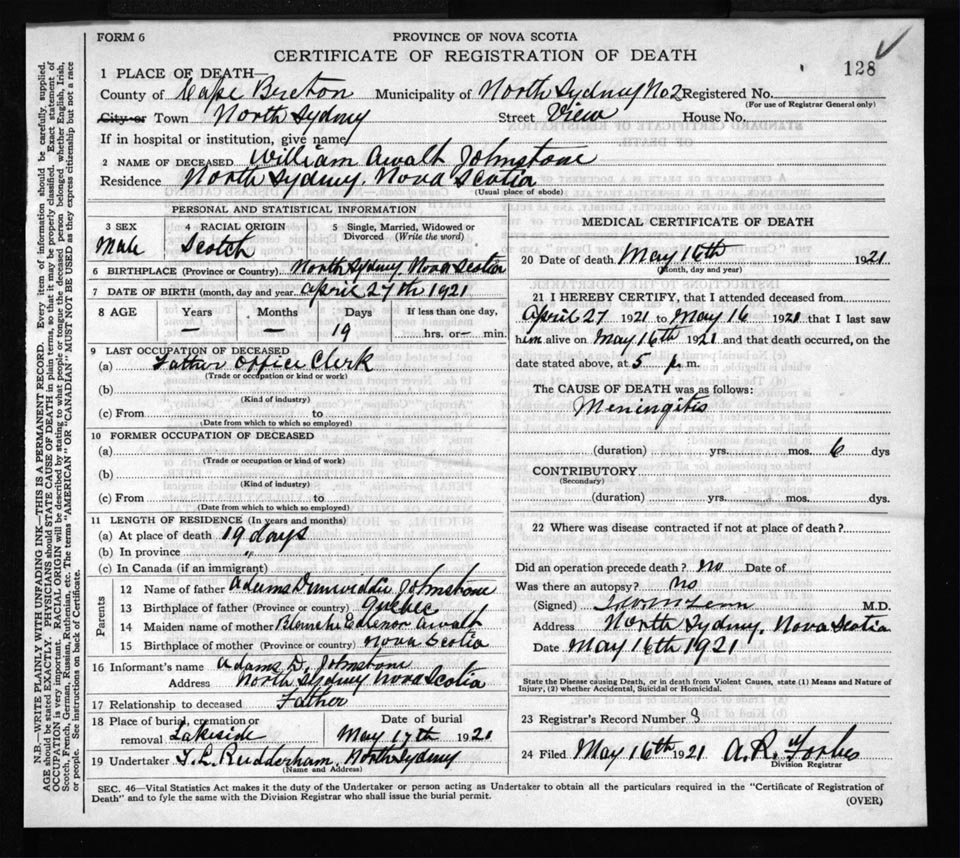 FORM 6
PROVINCE OF NOVA SCOTIA
CERTIFICATE OF REGISTRATION OF DEATH
128
1 PLACE OF DEATH—
County of Cape Breton Municipality of North Sydney No 2 Registered No.
(For use of Registrar General only)
City or Town North Sydney Street View House No.
If in hospital or institution, give name
2 NAME OF DECEASED William Awalt Johnstone
Residence North Sydney, Nova Scotia
(Usual place of abode)
PERSONAL AND STATISTICAL INFORMATION
3 SEX 4 RACIAL ORIGIN 5 Single, Married, Widowed or Divorced (Write the word)
Male Scotch
6 BIRTHPLACE (Province or Country) North Sydney Nova Scotia
7 DATE OF BIRTH (month, day and year) April 27th 1921
8 AGE Years Months Days If less than one day,
— — 19 hrs. or — min.
9 LAST OCCUPATION OF DECEASED
(a) Father Office Clerk
(Trade or occupation or kind or work)
(b)
(Kind of industry)
(c) From to
(Date from which to which so employed)
10 FORMER OCCUPATION OF DECEASED
(a)
(Trade or occupation or kind of work)
(b)
(Kind of industry)
(c) From to
(Date from which to which so employed)
11 LENGTH OF RESIDENCE (In years and months)
(a) At place of death 19 days
(b) In province "
(c) In Canada (if an immigrant)
Parents
12 Name of father Adams Dunwiddie Johnstone
13 Birthplace of father (Province or country) Quebec
14 Maiden name of mother Blanche Awalt
15 Birthplace of mother (Province or country) Nova Scotia
16 Informant's name Adams D. Johnstone
Address North Sydney Nova Scotia
17 Relationship to deceased Father
18 Place of burial, cremation or removal Lakeside
Date of burial May 17th 1921
19 Undertaker T. L. Rudderham, North Sydney
(Name and Address)
MEDICAL CERTIFICATE OF DEATH
20 Date of death May 16th 1921
(Month, day and year)
21 I HEREBY CERTIFY, that I attended deceased from
April 27 1921 to May 16 1921 that I last saw
him alive on May 16th 1921 and that death occurred, on the
date stated above, at 5 p. m.
The CAUSE OF DEATH was as follows:
Meningitis
(duration) yrs. mos. 6 dys
CONTRIBUTORY
(Secondary)
(duration) yrs. mos. dys.
22 Where was disease contracted if not at place of death?
Did an operation precede death? no Date of
Was there an autopsy? no
(Signed) M.D.
Address North Sydney, Nova Scotia
Date May 16th 1921
State the Disease causing Death, or in death from Violent Causes, state (1) Means and Nature of
Injury, (2) whether Accidental, Suicidal or Homicidal.
23 Registrar's Record Number
24 Filed May 16th 1921 A. R. Forbes
Division Registrar
SEC. 46—Vital Statistics Act makes it the duty of the Undertaker or person acting as Undertaker to obtain all the particulars required in the "Certificate of Registration of
Death" and to fyle the same with the Division Registrar who shall issue the burial permit.
(OVER)
N.B.—WRITE PLAINLY WITH UNFADING INK—THIS IS A PERMANENT RECORD. Every item of information should be carefully supplied.
AGE should be stated EXACTLY. PHYSICIANS should STATE CAUSE OF DEATH in plain terms, so that it may be properly classified. Exact statement of
OCCUPATION is very important. RACIAL ORIGIN will be described by stating to what people or tongue the deceased person belonged whether English, Irish,
Scotch, French, German, Russian, Ruthenian, etc. The terms "AMERICAN" OR "CANADIAN" MUST NOT BE USED as they express citizenship but not a race
or people. See instructions on back of Certificate.